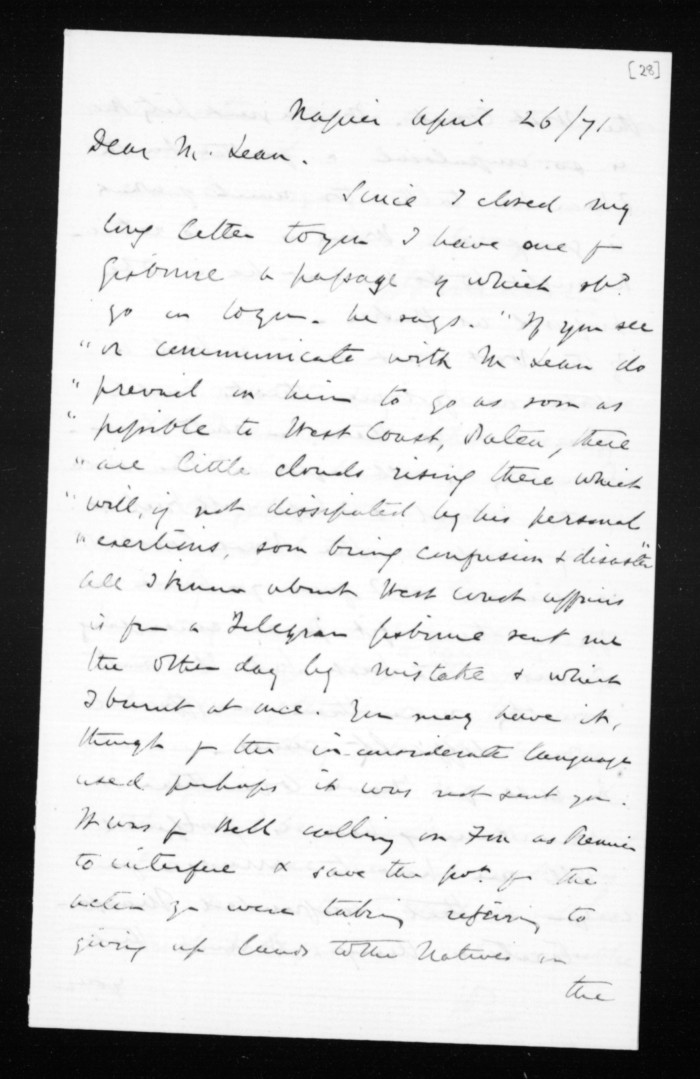 [28]
Napier April 26/71
Dear McLean.
Since I closed my
long letter to you I have one fr
Gisborne a passage of which shd
go on to you. he says. "If you see
"or communicate with McLean do
"prevail on him to go as soon as
"possible to West Coast, Patea, there
"are little clouds rising there which
"will, if not dissipated by his personal
"exertions, soon bring confusion & disaster"
All I know about West Coast affairs
is fm a Telegram Gisborne sent me
the other day by mistake & which
I burnt at once. You may have it,
though fr the inconsiderate language
used perhaps it was not sent you.
It was fr Bell calling on Fox as Premier
to interfere & save the Govt fr the
action you were taking referring to
giving up lands to the Natives on
the